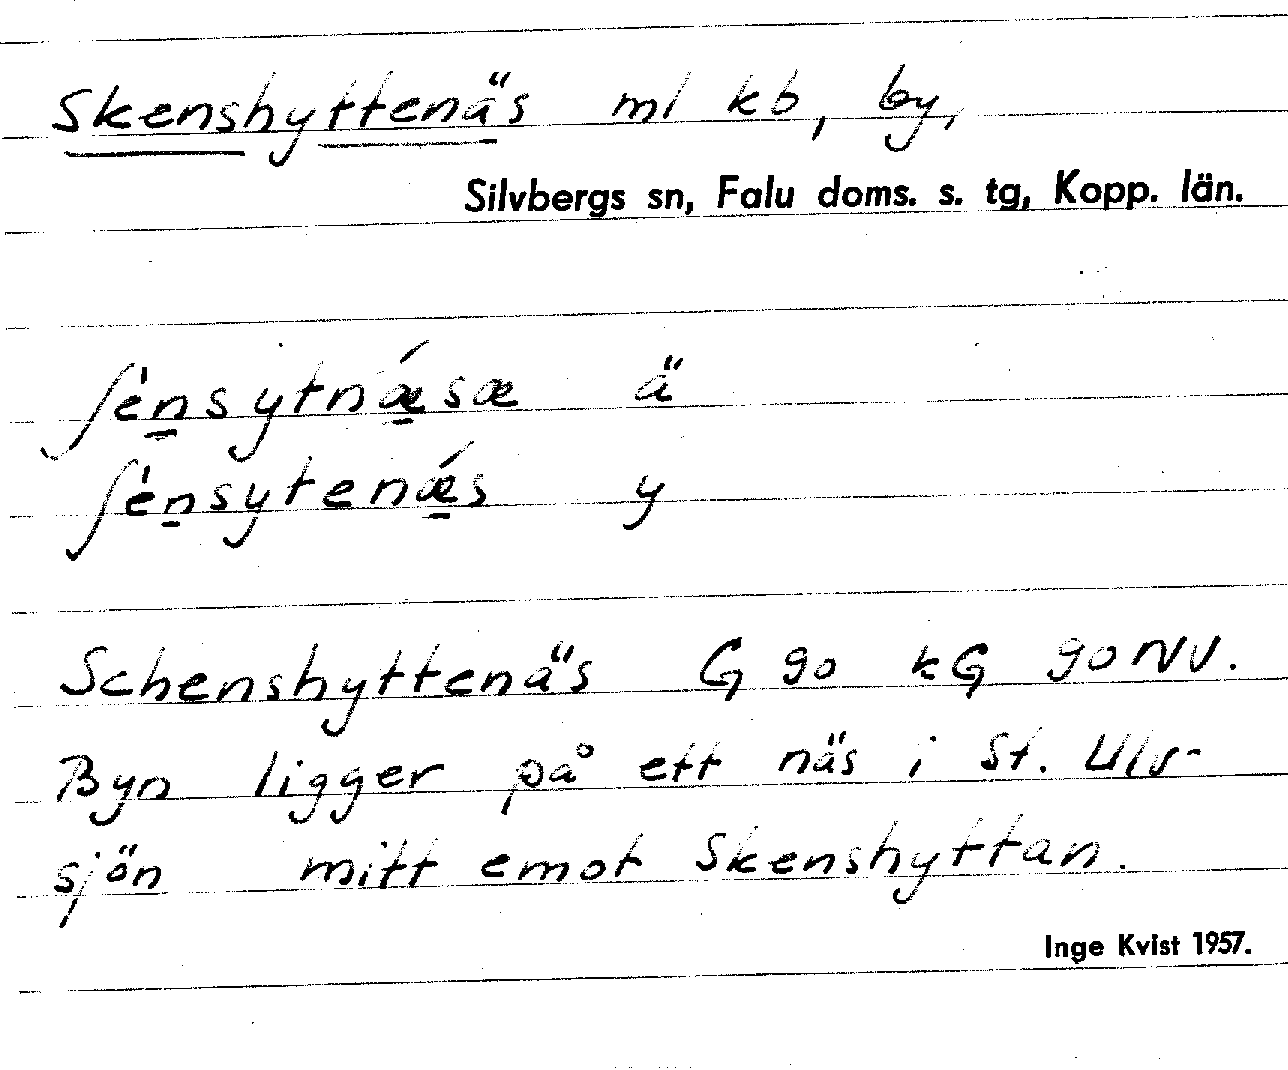 Skenshyttenäs ml kb, by,
Silvbergs sn, Falu doms. s. tg, Kopp. län.
ʃènsytnǽsæ ä
ʃènsytenǽs y
Schenshyttenäs G go kG goNV.
Byn ligger på ett näs i St. Ulv-
sjön mitt emot Skenshyttan.
Inge Kvist 1957.